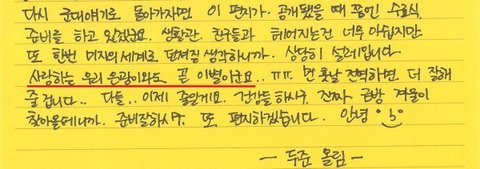 다시 군대얘기로 돌아가자면 이 편지가 공개됐을 때 쯤엔 수료식
준비를 하고 있겠네요. 생활관 친구들과 헤어지는건 너무 아쉽지만
또 한번 미지의 세계로 던져질 생각하니까. 상당히 설레입니다.
사랑하는 우리 은광이와도 곧 이별이군요.. ㅠㅠ 먼 훗날 전역하면 더 잘해
줄 겁니다.. 다들.. 이제 줄일게요. 건강들 하시구, 진짜 금방 겨울이
찾아올테니까. 준비잘하시구 또 편지하겠습니다. 안녕
- 두준 올림 -